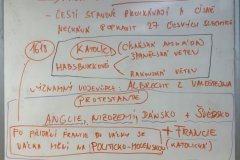 - ČEŠTÍ STAVOVÉ PROHRÁVAJÍ A CÍSAŘ
NECHÁVÁ POPRAVIT 27 ČESKÝCH
1618
KATOLÍCI
HABSBURKOVÉ
ŠPANĚLSKÁ VĚTEV
RAKOUSKÁ VĚTEV
VÝZNAMNÝ VOJEVŮDCE: ALBRECHT Z VALDŠTEJNA
PROTESTANTÉ
ANGLIE, NIZOZEMÍ, DÁNSKO + ŠVÉDSKO
+ FRANCIE
(KATOLICKÁ)
PO PŘIDÁNÍ FRANCIE DO VÁLKY SE
VÁLKA MĚNÍ NA POLITICKO-MOCENSKOU